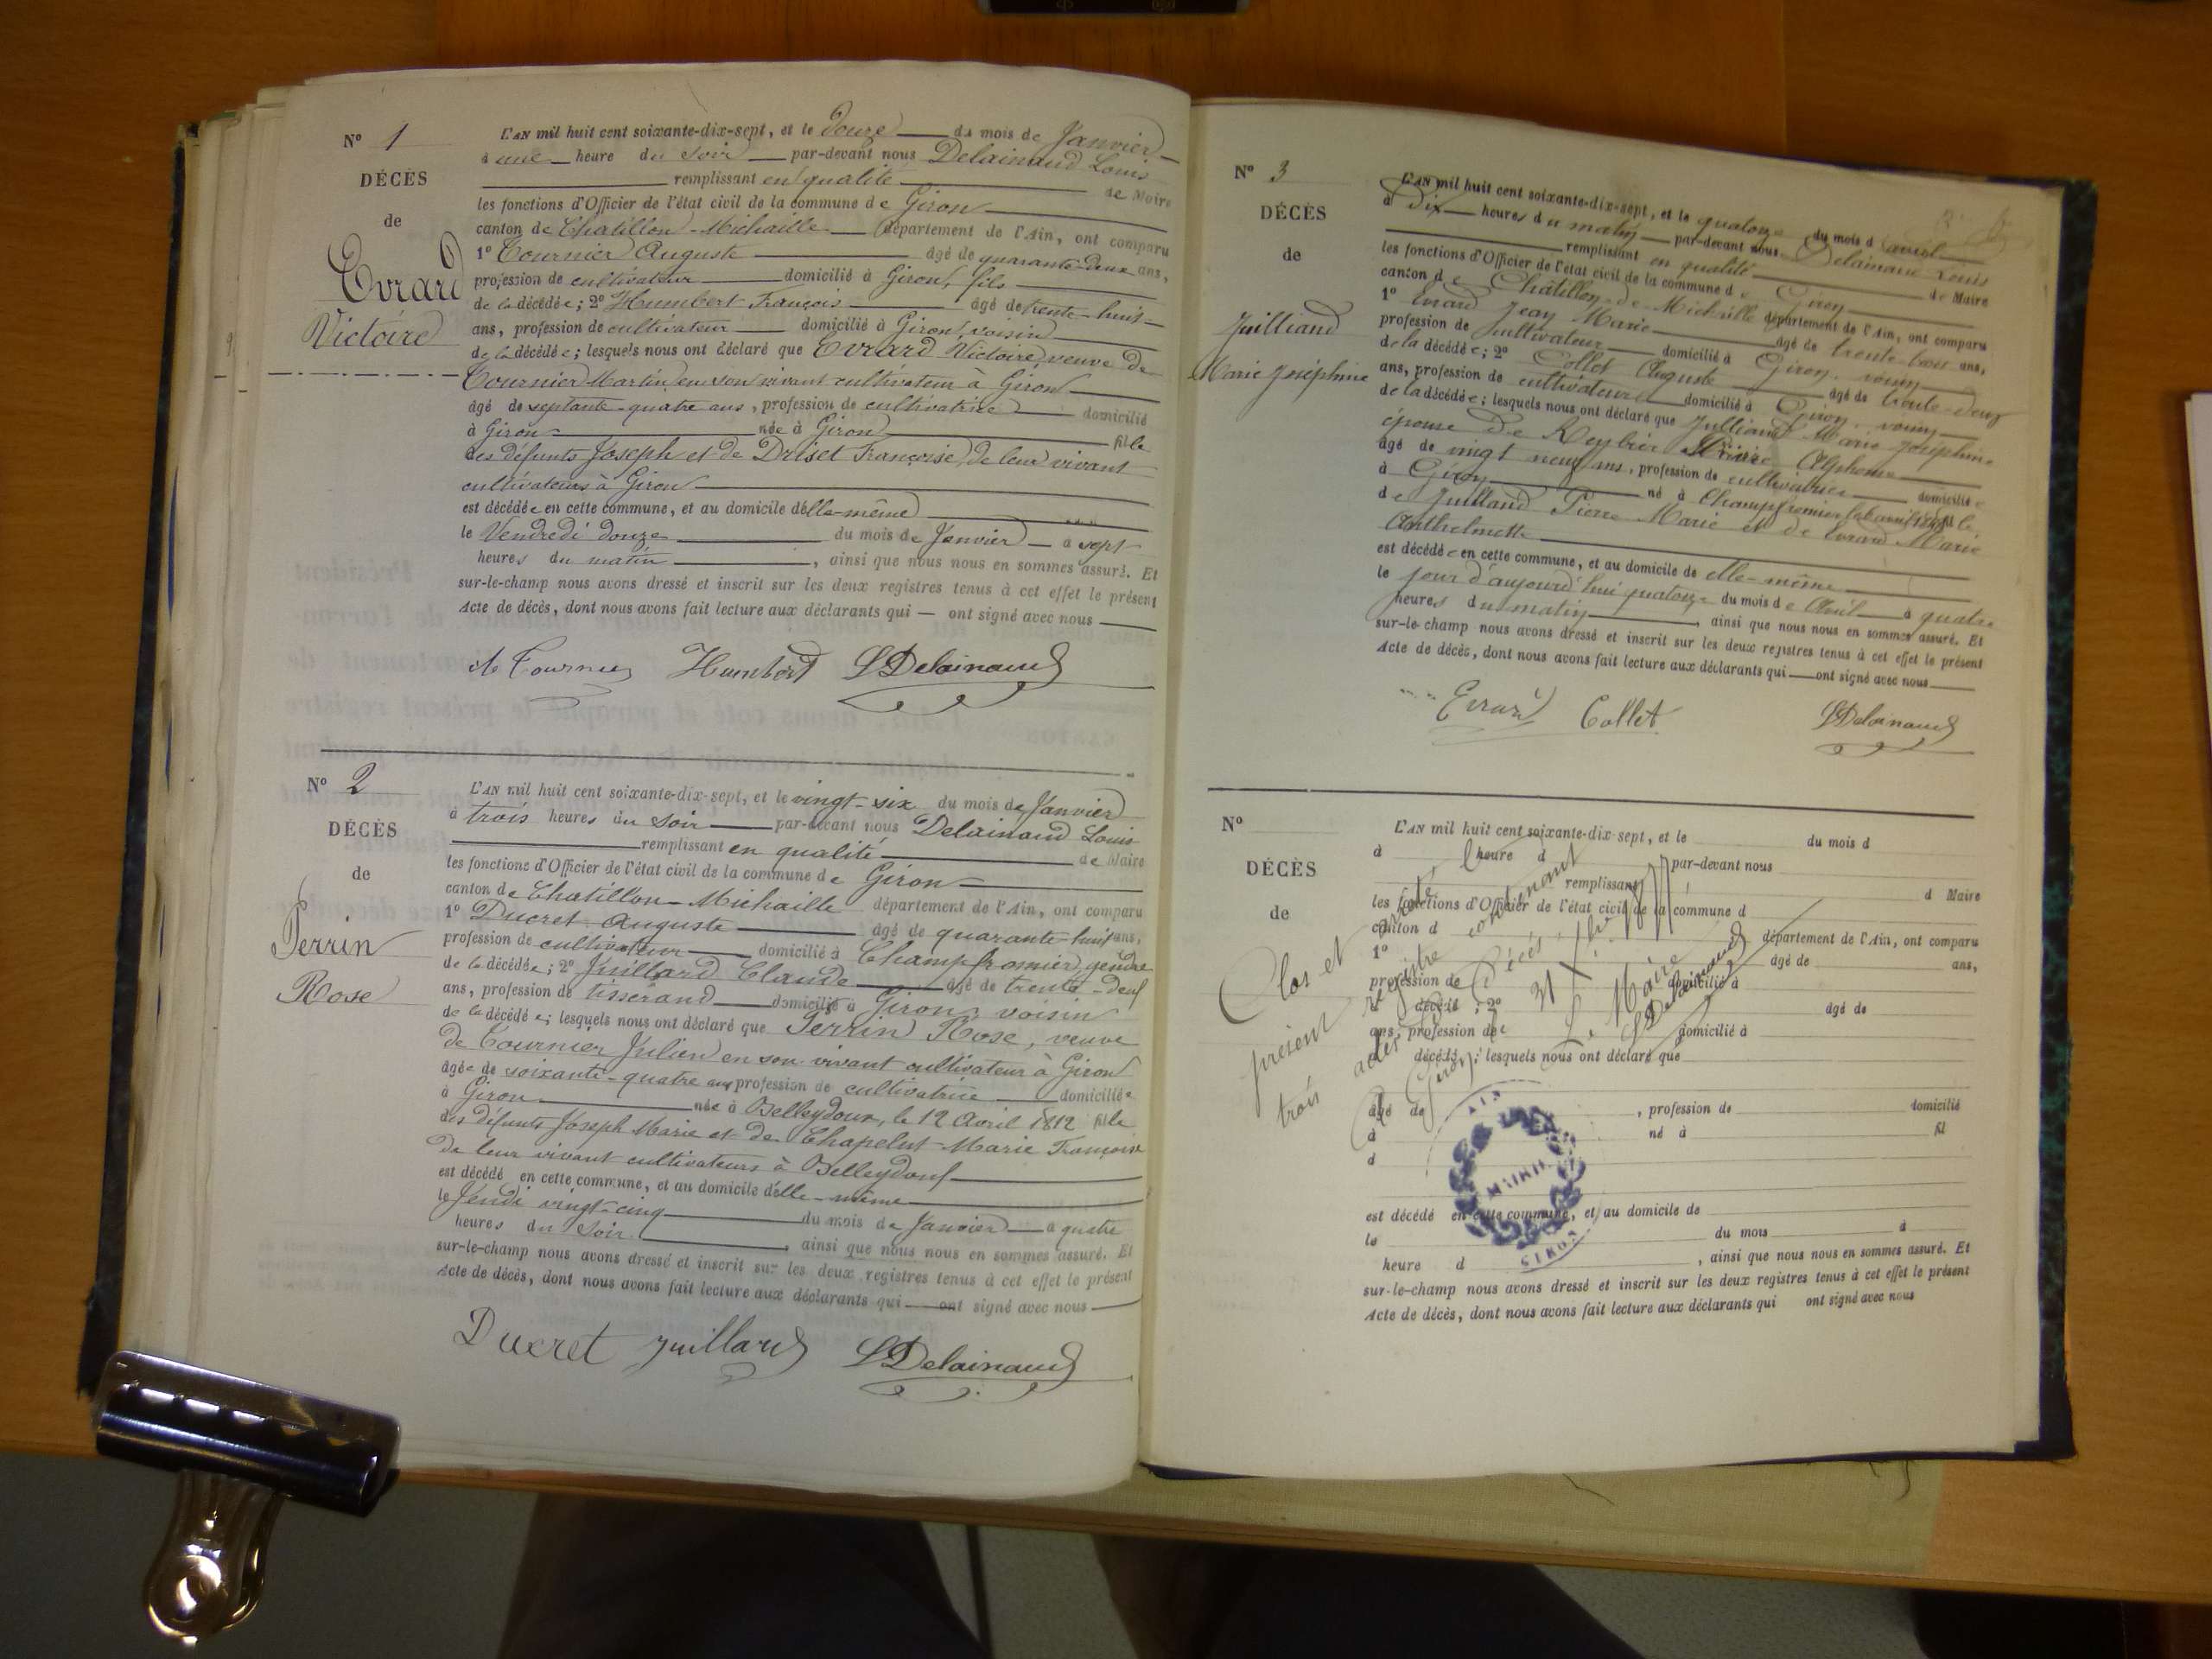 N° 1
DÉCÈS
de
Evrard
Victoire
L'AN mil huit cent soixante-dix-sept, et le douze du mois de Janvier
à une heure du soir par-devant nous Delainaud Louis
remplissant en qualité de Maire
les fonctions d'Officier de l'état civil de la commune de Giron
canton de Chatillon-Michaille département de l'Ain, ont comparu
1° Tournier Auguste âgé de quarante-deux ans,
profession de cultivateur domicilié à Giron, fils
de la décédée; 2° Humbert François âgé de trente-huit
ans, profession de cultivateur domicilié à Giron, voisin
de la décédée; lesquels nous ont déclaré que Evrard Victoire, veuve de
Tournier Martin, en son vivant cultivateur à Giron
âgé de septante-quatre ans, profession de cultivatrice domicilié
à Giron née à Giron fille
des défunts Joseph et de Driset Françoise, de leur vivant
cultivateurs à Giron
est décédée en cette commune, et au domicile d'elle-même
le Vendredi douze du mois de Janvier à sept
heures du matin, ainsi que nous nous en sommes assuré. Et
sur-le-champ nous avons dressé et inscrit sur les deux registres tenus à cet effet le présent
Acte de décès, dont nous avons fait lecture aux déclarants qui — ont signé avec nous
A Tournier Humbert L Delainaud
N° 2
DÉCÈS
de
Perrin
Rose
L'AN mil huit cent soixante-dix-sept, et le vingt-six du mois de Janvier
à trois heures du soir par-devant nous Delainaud Louis
remplissant en qualité de Maire
les fonctions d'Officier de l'état civil de la commune de Giron
canton de Chatillon-Michaille département de l'Ain, ont comparu
1° Ducret Auguste âgé de quarante-huit ans,
profession de cultivateur domicilié à Champfromier, gendre
de la décédée; 2° Juillard Claude âgé de trente-deux
ans, profession de tisserand domicilié à Giron, voisin
de la décédée; lesquels nous ont déclaré que Perrin Rose, veuve
de Tournier Julien en son vivant cultivateur à Giron
âgée de soixante-quatre ans profession de cultivatrice domiciliée
à Giron née à Belleydoux, le 12 Avril 1812 fille
des défunts Joseph Marie et de Chapelut Marie Françoise
de leur vivant cultivateurs à Belleydoux
est décédé en cette commune, et au domicile d'elle-même
le Jeudi vingt-cinq du mois de Janvier à quatre
heures du Soir, ainsi que nous nous en sommes assuré. Et
sur-le-champ nous avons dressé et inscrit sur les deux registres tenus à cet effet le présent
Acte de décès, dont nous avons fait lecture aux déclarants qui — ont signé avec nous
Ducret Juillard L Delainaud
N° 3
DÉCÈS
de
Juilliand
Marie Joséphine
L'AN mil huit cent soixante-dix-sept, et le quatorze du mois d'avril
à Dix heures du matin par-devant nous Delainaud Louis
remplissant en qualité de Maire
les fonctions d'Officier de l'état civil de la commune de Giron
canton de Châtillon-de-Michaille département de l'Ain, ont comparu
1° Evrard Jean Marie âgé de trente trois ans,
profession de cultivateur domicilié à Giron, voisin
de la décédée; 2° Collet Auguste âgé de trente-deux
ans, profession de cultivateur domicilié à Giron, voisin
de la décédée; lesquels nous ont déclaré que Juilliand Marie Joséphine
épouse de Reybier Pierre Alphonse
âgé de vingt neuf ans, profession de cultivatrice domiciliée
à Giron né à Champfromier fille
de Juilland Pierre Marie et de Evrard Marie
Anthelmette
est décédée en cette commune, et au domicile de elle-même
le jour d'aujourd'hui quatorze du mois de Avril à quatre
heures du matin, ainsi que nous nous en sommes assuré. Et
sur-le-champ nous avons dressé et inscrit sur les deux registres tenus à cet effet le présent
Acte de décès, dont nous avons fait lecture aux déclarants qui — ont signé avec nous
Evrard Collet L Delainaud
N°
DÉCÈS
de
L'AN mil huit cent soixante-dix-sept, et le du mois d
à heure d par-devant nous
remplissant d Maire
les fonctions d'Officier de l'état civil de la commune d
canton d département de l'Ain, ont comparu
1° âgé de ans,
profession de domicilié à
d décédé ; 2° âgé de
ans, profession de domicilié à
d décédé ; lesquels nous ont déclaré que
âgé de , profession de domicilié
à né à fil
d
est décédé en cette commune, et au domicile de
le du mois à
heure d , ainsi que nous nous en sommes assuré. Et
sur-le-champ nous avons dressé et inscrit sur les deux registres tenus à cet effet le présent
Acte de décès, dont nous avons fait lecture aux déclarants qui ont signé avec nous
Clos et arrêté le
présent registre contenant
trois actes de Décès
Giron, 31
Le Maire
L Delainaud
AIN
MAIRIE
GIRON